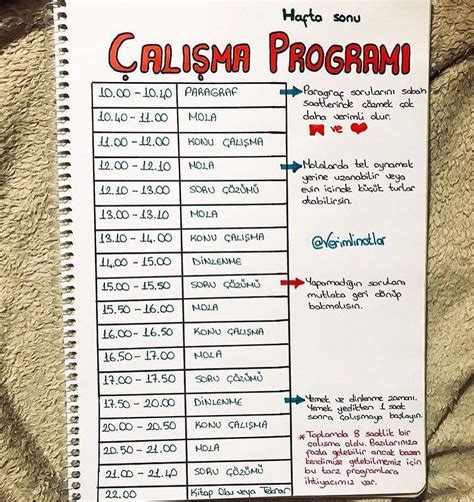 Hafta sonu
ÇALIŞMA PROGRAMI
10.00 - 10.40 PARAGRAF
10.40 - 11.00 MOLA
11.00 - 12.00 KONU ÇALIŞMA
12.00 - 12.10 MOLA
12.10 - 13.00 SORU ÇÖZÜMÜ
13.00 - 13.10 MOLA
13.10 - 14.00 KONU ÇALIŞMA
14.00 - 15.00 DİNLENME
15.00 - 15.50 SORU ÇÖZÜMÜ
15.50 - 16.00 MOLA
16.00 - 16.50 KONU ÇALIŞMA
16.50 - 17.00 MOLA
17.00 - 17.50 SORU ÇÖZÜMÜ
17.50 - 20.00 DİNLENME
20.00 - 20.50 KONU ÇALIŞMA
20.50 - 21.00 MOLA
21.00 - 21.40 SORU ÇÖZÜMÜ
22.00 Kitap Oku veya Tekrar
Paragraf sorularını sabah
saatlerinde çözmek çok
daha verimli olur.
ve
Molalarda tel oynamak
yerine uzanabilir veya
evin içinde küçük turlar
atabilirsin.
@Verimlinotlar
Yapamadığın sorulara
mutlaka geri dönüp
bakmalısın.
Yemek ve dinlenme zamanı.
Yemek yedikten 1 saat
sonra çalışmaya başlayın.
* Toplamda 8 saatlik bir
çalışma oldu. Bazılarınıza
fazla gelebilir ancak bazen
kendimize gelebilmemiz için
bu tarz programlara
ihtiyacımız var.